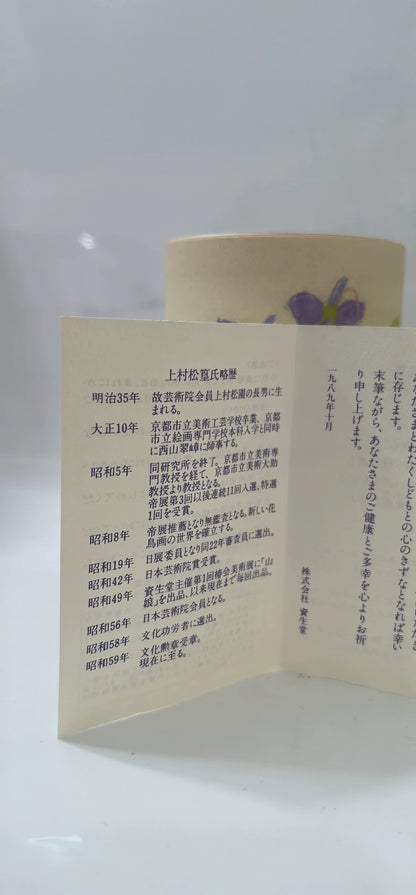 上村松篁氏略歴
明治35年 故芸術院会員上村松園の長男に生
まれる。
大正10年 京都市立美術工芸学校卒業、京都
市立絵画専門学校本科入学と同時
に西山翠嶂に師事する。
昭和5年 同研究所を終了。京都市立美術専
門教授を経て、京都市立美術大助
教授より教授となる。
帝展第3回以後連続11回入選、特選
1回を受賞。
昭和8年 帝展推薦となり無鑑査となる。新しい花
鳥画の世界を確立する。
昭和19年 日展委員となり同22年審査員に選出。
昭和42年 日本芸術院賞受賞。
昭和49年 資生堂主催第1回椿会美術展に「山
娘」を出品、以来現在まで毎回出品。
昭和56年 日本芸術院会員となる。
昭和58年 文化功労者に選出。
昭和59年 文化勲章受章。
現在に至る。
さまとわたくしどもとの心のきずなとなれば幸い
に存じます。
末筆ながら、あなたさまのご健康とご多幸を心よりお祈
り申し上げます。
一九八九年十月
株式会社 資生堂